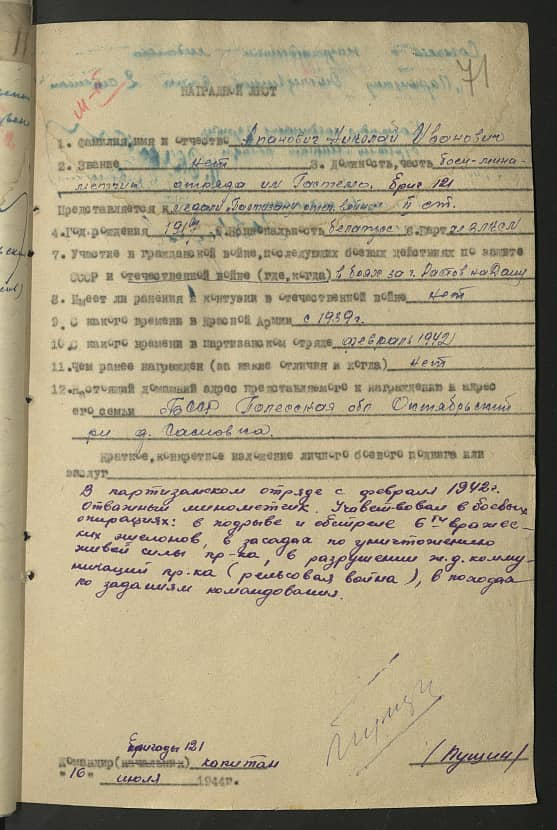 71
НАГРАДНОЙ ЛИСТ
1. Фамилия, имя и отчество Апанович Николай Иванович
2. Звание нет 3. Должность, часть боец-мино-
метчик отряда им Гастело. Бриг 121
Представляется к медали Партизану отеч. войны II ст.
4. Год рождения 1917 5. Национальность белорус 6. Парт ВЛКСМ
7. Участие в гражданской войне, последующих боевых действиях по защите
СССР и отечественной войне (где, когда) в боях за г. Ростов на Дону
8. Имеет ли ранения и контузии в отечественной войне нет
9. С какого времени в Красной Армии с 1939г.
10. С какого времени в партизанском отряде февраль 1942
11. Чем ранее награжден (за какие отличия и когда) нет
12. Настоящий домашний адрес представляемого к награждению и адрес
его семьи БССР Полесская обл Октябрьский
рн д.
Краткое, конкретное изложение личного боевого подвига или
заслуг
В партизанском отряде с февраля 1942г.
Отважный минометчик. Участвовал в боевых
операциях: в подрыве и обстреле 6ти вражес-
ких эшелонов, в засадах по уничтожению
живой силы пр-ка, в разрушении ж.д. комму-
никаций пр-ка (рельсовая война), в походах
по заданиям командования.
бригады 121
Командир (начальник) капитан (Пущин)
"16" июля 1944г.